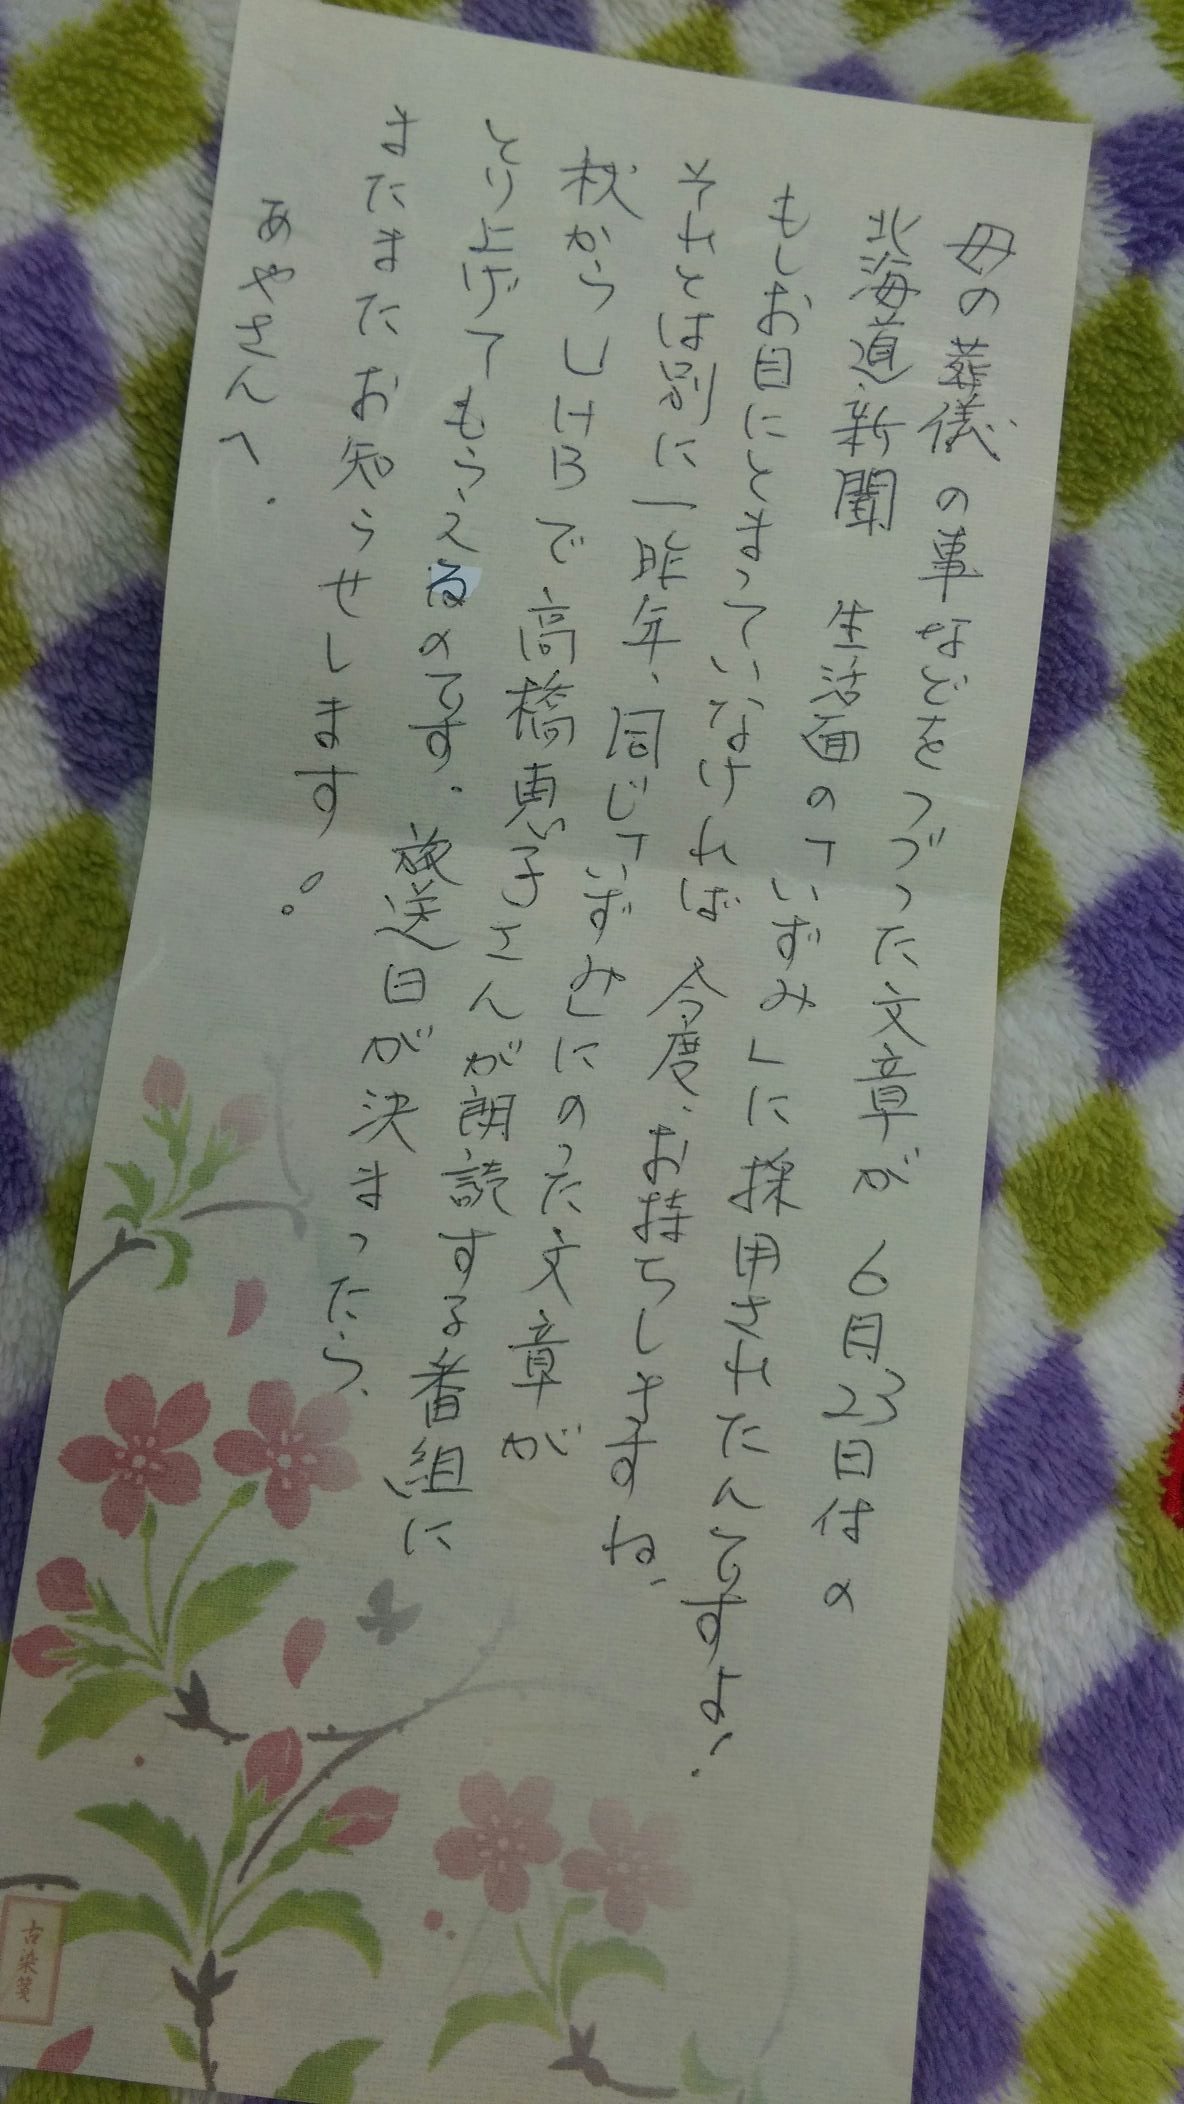 母の葬儀の事などをつづった文章が 6月23日付の
北海道新聞 生活面の「いずみ」に採用されたんですよ、.
もしお目にとまっていなければ 今度、お持ちしますね、
それとは別に一昨年、同じ「いずみ」にのった文章が
秋からUHBで高橋恵子さんが朗読する番組に
とり上げてもらえるのです. 放送日が決まったら、
またまたお知らせします。。
あやさんへ.
古染箋